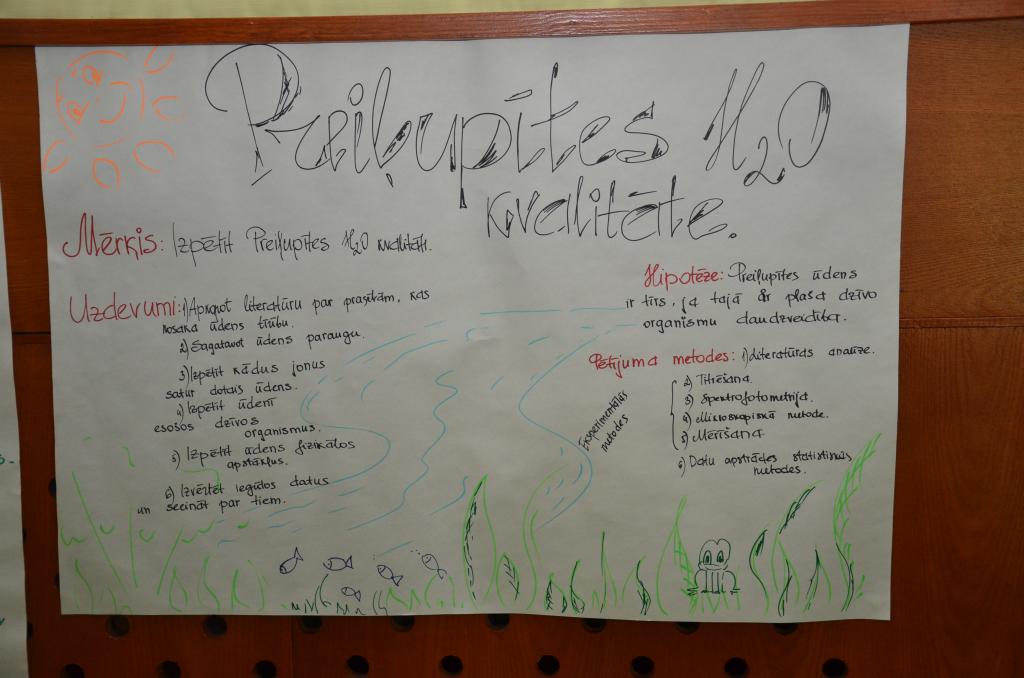 Preiļupītes H2O
kvalitāte.
Mērķis: Izpētīt Preiļupītes H2O kvalitāti.
Uzdevumi: 1) Apkopot literatūru par prasībām, kas
nosaka ūdens tīrību.
2) Sagatavot ūdens paraugu.
3) Izpētīt kādus jonus
satur dotais ūdens.
4) Izpētīt ūdenī
esošos dzīvos
organismus.
5) Izpētīt ūdens fizikālos
apstākļus.
6) Izvērtēt iegūtos datus
un secināt par tiem.
Hipotēze: Preiļupītes ūdens
ir tīrs, ja tajā ir plaša dzīvo
organismu daudzveidība.
Pētījuma metodes: 1) Literatūras analīze.
Eksperimentālās
metodes
2) Titrēšana.
3) Spektrofotometrija.
4) Mikroskopiskā metode.
5) Mērīšana
6) Datu apstrādes statistiskās
metodes.